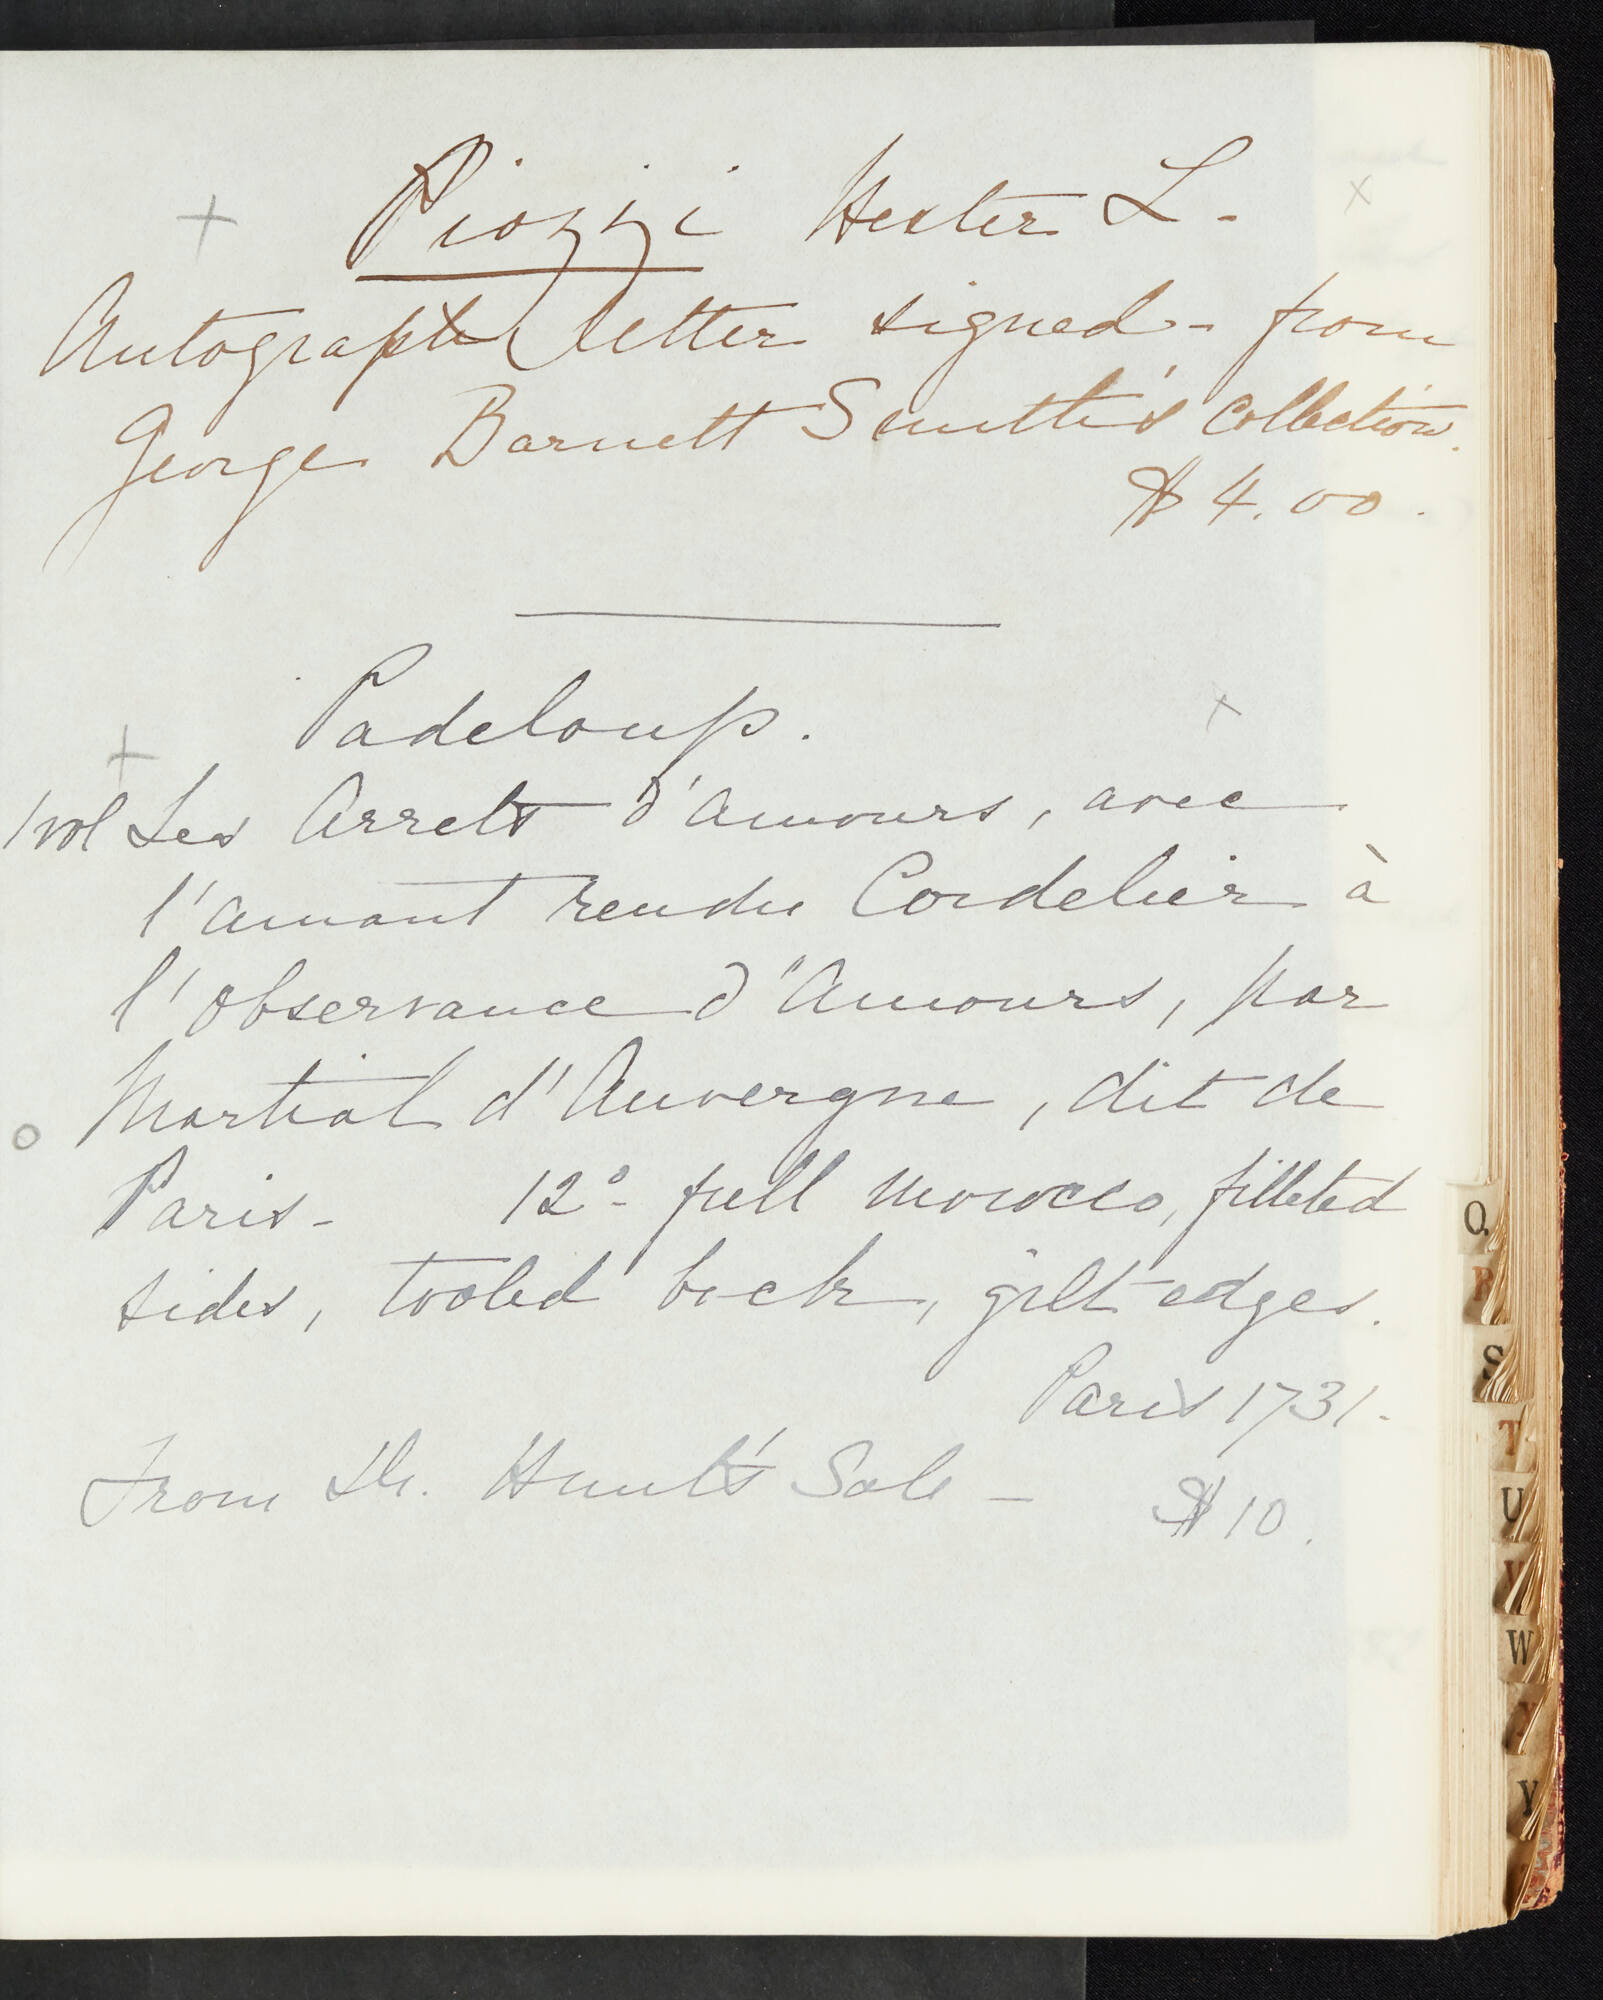 + Piozzi Hester L- x
Autograph letter signed - from
George Barnett Smith's collection.
$4.00.
Padeloup.
+ x
1 vol Les Arrets d'Amours, avec
l'amant rendu Cordelier à
l'observance d'Amours, par
Martial d'Auvergne, dit de
o
Paris - 12º- full morocco, filleted
sides, tooled back, gilt edges.
Paris 1731-
From Dr. Hunt's Sale - $10.
Q
R
S
T
U
V
W
Y